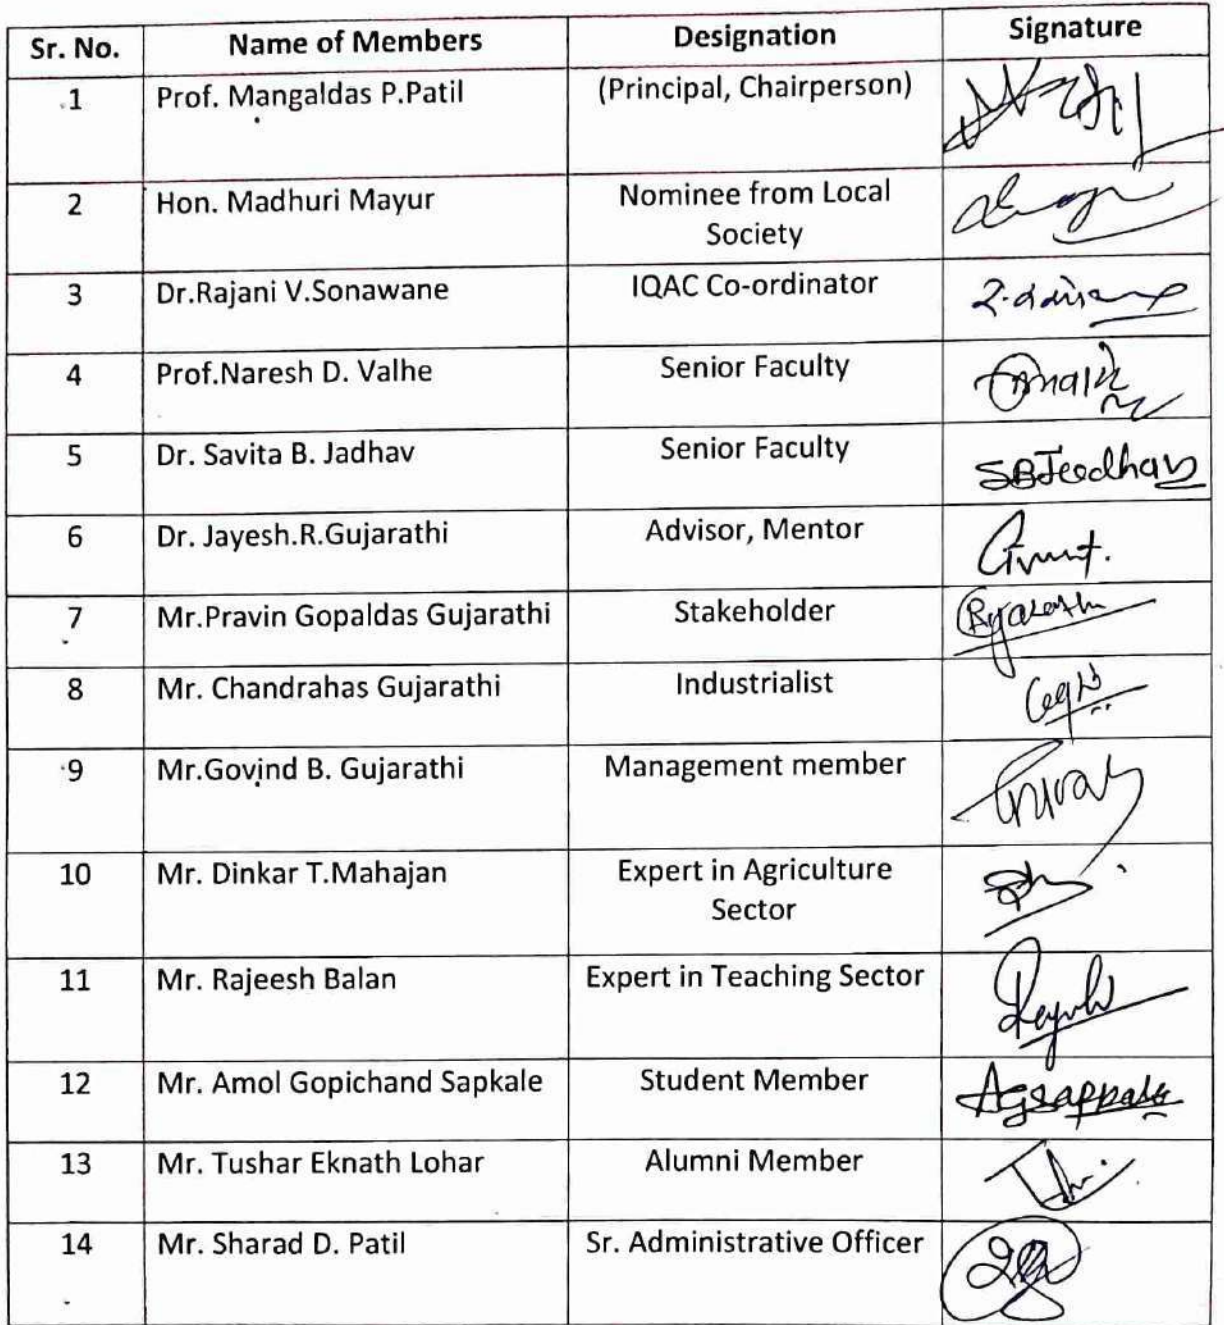 Sr. No. Name of Members Designation Signature
1 Prof. Mangaldas P.Patil (Principal, Chairperson)
2 Hon. Madhuri Mayur Nominee from Local
Society
3 Dr.Rajani V.Sonawane IQAC Co-ordinator
4 Prof.Naresh D. Valhe Senior Faculty
5 Dr. Savita B. Jadhav Senior Faculty SBJadhav
6 Dr. Jayesh.R.Gujarathi Advisor, Mentor
7 Mr.Pravin Gopaldas Gujarathi Stakeholder
8 Mr. Chandrahas Gujarathi Industrialist
9 Mr.Govind B. Gujarathi Management member
10 Mr. Dinkar T.Mahajan Expert in Agriculture
Sector
11 Mr. Rajeesh Balan Expert in Teaching Sector
12 Mr. Amol Gopichand Sapkale Student Member
13 Mr. Tushar Eknath Lohar Alumni Member
14 Mr. Sharad D. Patil Sr. Administrative Officer